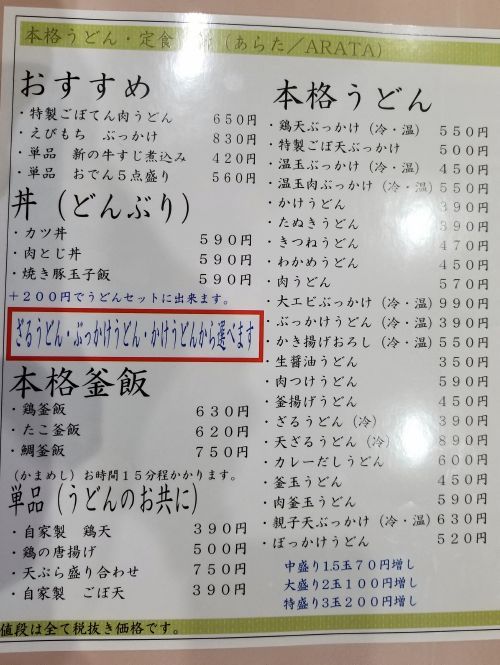 本格うどん・定食 新（あらた／ARATA）
おすすめ
・特製ごぼてん肉うどん 650円
・えびもち ぶっかけ 830円
・単品 新の牛すじ煮込み 420円
・単品 おでん５点盛り 560円
丼（どんぶり）
・カツ丼 590円
・肉とじ丼 590円
・焼き豚玉子飯 590円
＋２００円でうどんセットに出来ます。
ざるうどん・ぶっかけうどん・かけうどんから選べます
本格釜飯
・鶏釜飯 630円
・たこ釜飯 620円
・鯛釜飯 750円
（かまめし）お時間１５分程かかります。
単品（うどんのお共に）
・自家製 鶏天 390円
・鶏の唐揚げ 500円
・天ぷら盛り合わせ 750円
・自家製 ごぼ天 390円
本格うどん
・鶏天ぶっかけ（冷・温） 550円
・特製ごぼ天ぶっかけ 500円
・温玉ぶっかけ（冷・温） 450円
・温玉肉ぶっかけ（冷・温） 550円
・かけうどん 390円
・たぬきうどん 390円
・きつねうどん 470円
・わかめうどん 450円
・肉うどん 570円
・大エビぶっかけ（冷・温） 990円
・ぶっかけうどん（冷・温） 390円
・かき揚げおろし（冷・温） 550円
・生醤油うどん 350円
・肉つけうどん 590円
・釜揚げうどん 450円
・ざるうどん（冷） 390円
・天ざるうどん（冷） 890円
・カレーだしうどん 600円
・釜玉うどん 450円
・肉釜玉うどん 590円
・親子天ぶっかけ（冷・温） 630円
・ぼっかけうどん 520円
中盛り1.5玉７０円増し
大盛り2玉１００円増し
特盛り3玉２００円増し
値段は全て税抜き価格です。